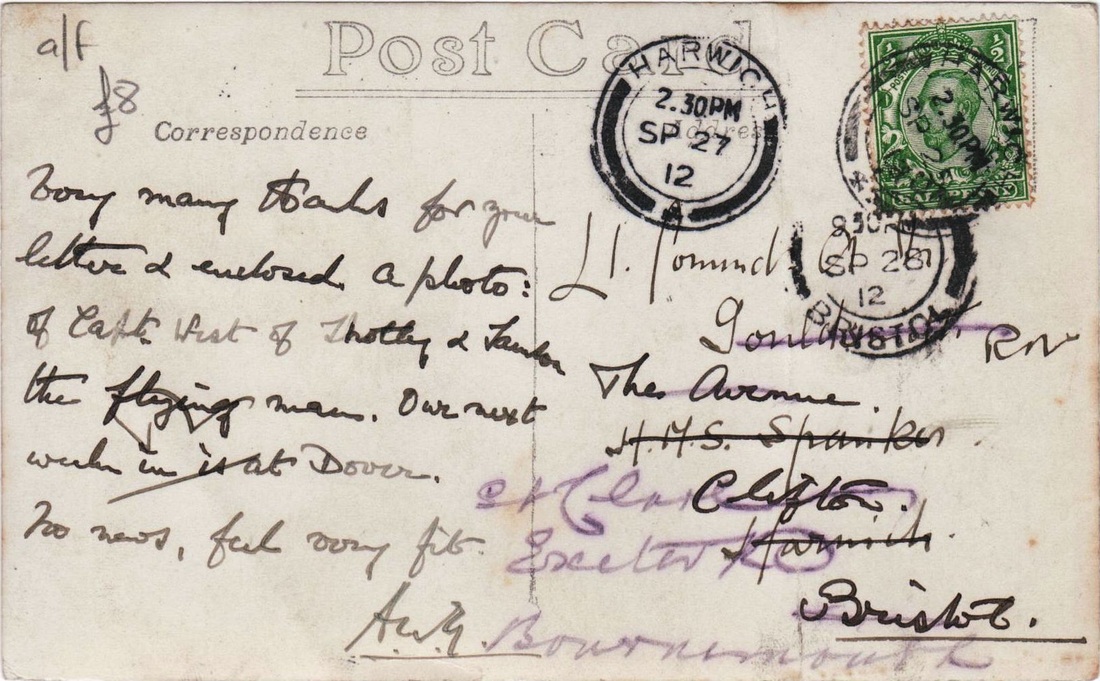 a/f
£8
Post Card
Correspondence
Address
HARWICH
2.30PM
SP 27
12
A
HARWICH
2.30PM
SP 27
8 30PM
SP 28
12
BRISTOL
Very many thanks for your
letter & enclosed. A photo:
of Capt. West of Notley &
the flying man. Our next
week is at Dover.
No news, feel very fit.
A.W.G.
Lt.
R N
The Avenue.
H.M.S. Spanker
Clifton.
Harwich.
Bristol.
Exeter Rd
Bournemouth